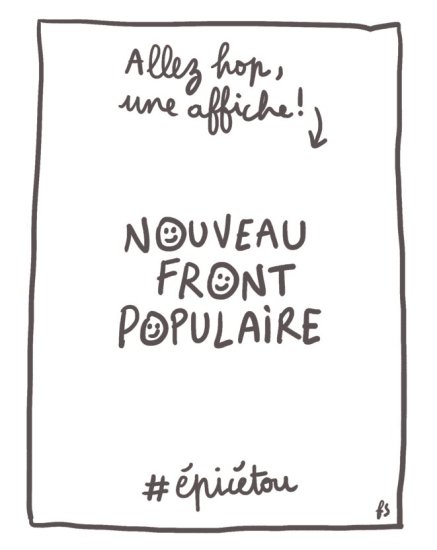 Allez hop,
une affiche!
NOUVEAU
FRONT
POPULAIRE
#épicétou
fs